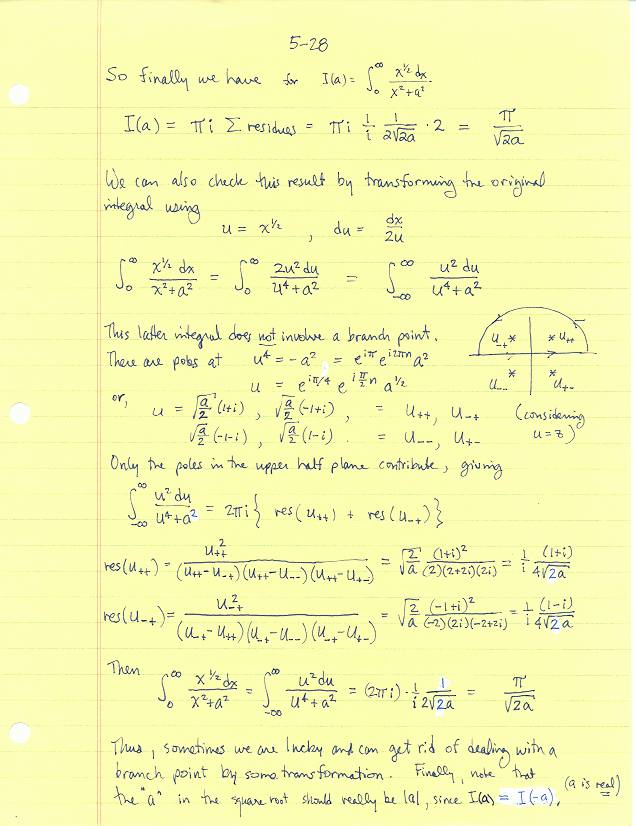 5-28
So finally we have for I(a) = ∫₀^∞ x^{1/2} dx / (x² + a²)
I(a) = πi Σ residues = πi (1/i) (1/(2√(2a))) · 2 = π/√(2a)
We can also check this result by transforming the original
integral using
u = x^{1/2} , du = dx/(2u)
∫₀^∞ x^{1/2} dx / (x² + a²) = ∫₀^∞ 2u² du / (u⁴ + a²) = ∫_{-∞}^∞ u² du / (u⁴ + a²)
This latter integral does not involve a branch point.
There are poles at u⁴ = -a² , = e^{iπ} e^{i2πn} a²
u = e^{iπ/4} e^{i(π/2)n} a^{1/2}
u₋₊ * * u₊₊
u₋₋ * * u₊₋
or, u = √(a/2) (1+i) , √(a/2) (-1+i) , = u₊₊, u₋₊
√(a/2) (-1-i) , √(a/2) (1-i) . = u₋₋, u₊₋
(considering
u = z)
Only the poles in the upper half plane contribute, giving
∫_{-∞}^∞ u² du / (u⁴ + a²) = 2πi { res(u₊₊) + res(u₋₊) }
res(u₊₊) = u₊₊² / ((u₊₊ - u₋₊)(u₊₊ - u₋₋)(u₊₊ - u₊₋)) = √(2/a) (1+i)² / ((2)(2+2i)(2i)) = (1/i) (1+i)/(4√(2a))
res(u₋₊) = u₋₊² / ((u₋₊ - u₊₊)(u₋₊ - u₋₋)(u₋₊ - u₊₋)) = √(2/a) (-1+i)² / ((-2)(2i)(-2+2i)) = (1/i) (1-i)/(4√(2a))
Then ∫₀^∞ x^{1/2} dx / (x² + a²) = ∫_{-∞}^∞ u² du / (u⁴ + a²) = (2πi) · (1/i) (1/(2√(2a))) = π/√(2a)
Thus, sometimes we are lucky and can get rid of dealing with a
branch point by some transformation. Finally, note that
the "a" in the square root should really be |a|, since I(a) = I(-a). (a is real)